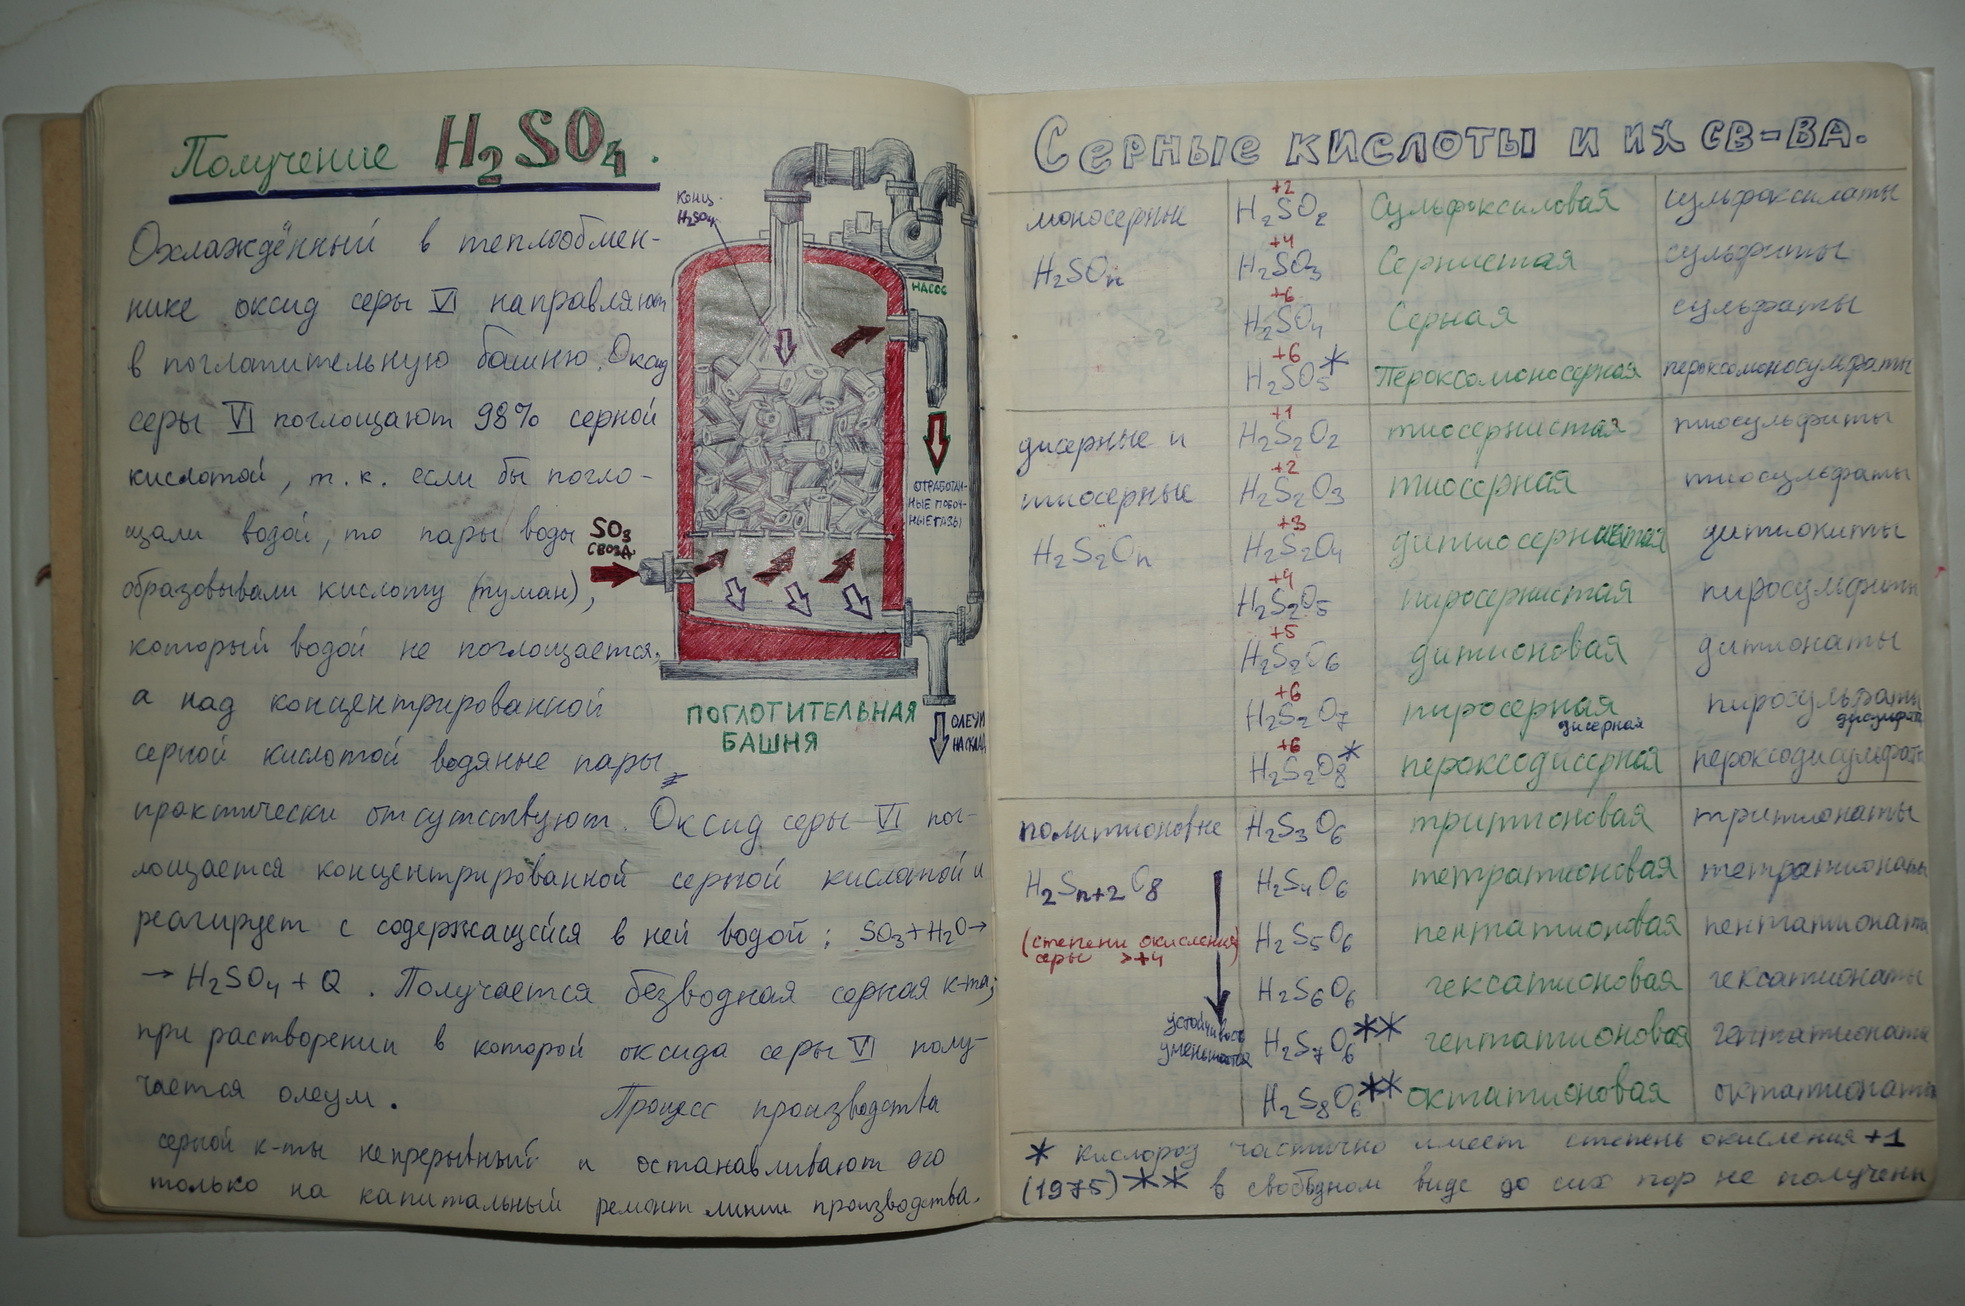 Получение H₂SO₄.
Охлаждённый в теплообмен-
нике оксид серы VI направляют
в поглатительную башню. Оксид
серы VI поглощают 98% серной
кислотой, т.к. если бы погло-
щали водой, то пары воды
образовывали кислоту (туман),
который водой не поглощается,
а над концентрированной
серной кислотой водяные пары
практически отсутствуют. Оксид серы VI пог-
лощается концентрированной серной кислотой и
реагирует с содержащейся в ней водой: SO₃+H₂O→
→ H₂SO₄ + Q. Получается безводная серная к-та;
при растворении в которой оксида серы VI полу-
чается олеум. Процесс производства
серной к-ты непрерывный и останавливают его
только на капитальный ремонт линии производства.
конц.
H₂SO₄
НАСОС
ОТРАБОТАН-
НЫЕ ПОБОЧ-
НЫЕ ГАЗЫ
SO₃
С ВОЗД.
ПОГЛОТИТЕЛЬНАЯ
БАШНЯ
ОЛЕУМ
НА СКЛАД
Серные кислоты и их св-ва.
моносерные
H₂SOₙ
+2
H₂SO₂ Сульфоксиловая сульфоксилаты
+4
H₂SO₃ Сернистая сульфиты
+6
H₂SO₄ Серная сульфаты
+6
H₂SO₅* Пероксомоносерная пероксомоносульфаты
дисерные и
тиосерные
H₂S₂Oₙ
+1
H₂S₂O₂ тиосернистая тиосульфиты
+2
H₂S₂O₃ тиосерная тиосульфаты
+3
H₂S₂O₄ дитиосернистая дитиониты
+4
H₂S₂O₅ пиросернистая пиросульфиты
+5
H₂S₂O₆ дитионовая дитионаты
+6
H₂S₂O₇ пиросерная пиросульфаты
дисерная дисульфаты
+6
H₂S₂O₈* пероксодисерная пероксодисульфаты
политионовые
H₂Sₙ₊₂O₈
(степени окисления
серы >+4
устойчивость
уменьшается
H₂S₃O₆ тритионовая тритионаты
H₂S₄O₆ тетратионовая тетратионаты
H₂S₅O₆ пентатионовая пентатионаты
H₂S₆O₆ гексатионовая гексатионаты
H₂S₇O₆** гептатионовая гептатионаты
H₂S₈O₆** октатионовая октатионаты
* кислород частично имеет степень окисления +1
(1975) ** в свободном виде до сих пор не получены